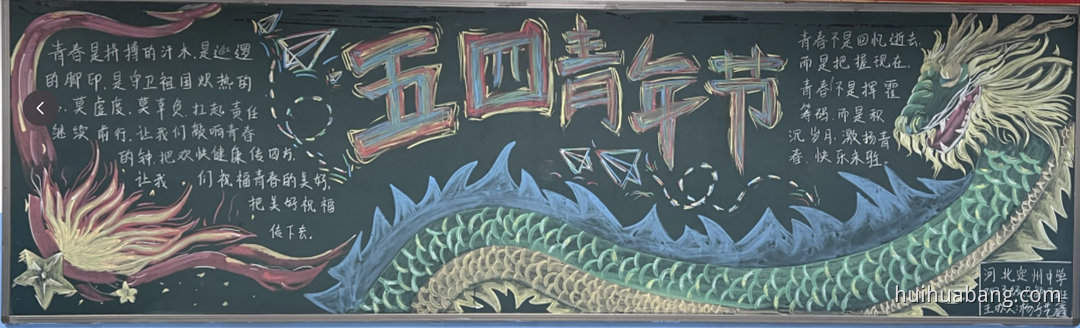 五四青年节
青春是拼搏的汗水,是巡逻
的脚印,是守卫祖国炽热的
心,莫虚度,莫辜负,扛起责任
继续前行,让我们敲响青春
的钟,把欢快健康传四方,
让我们祝福青春的美好,
把美好祝福
传下去。
青春不是回忆逝去,
而是把握现在,
青春不是挥霍
筹码,而是积
沉岁月,激扬青
春,快乐永驻。
河北定州中学
huihuabang.com